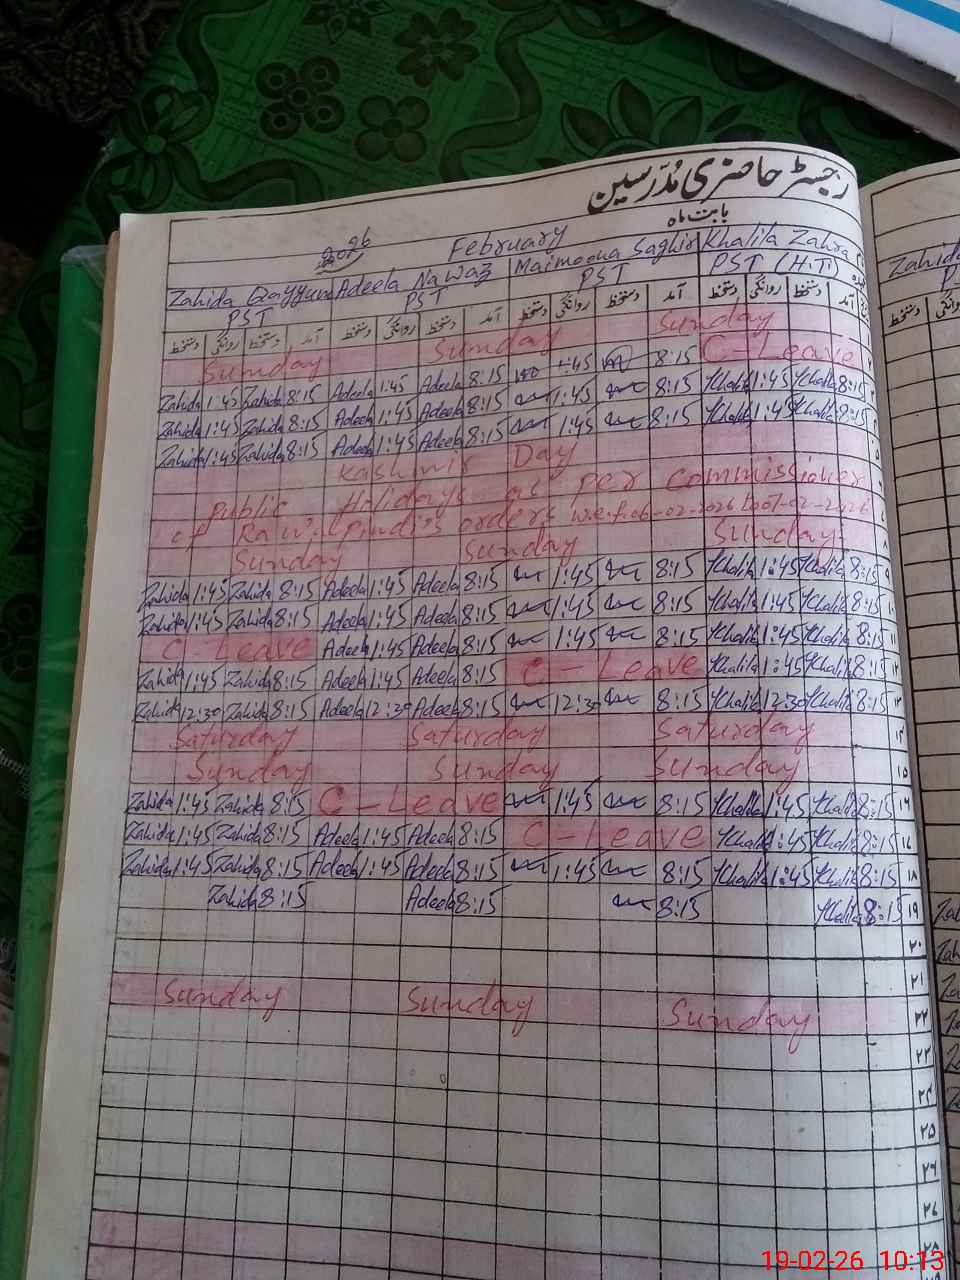 رجسٹر حاضری مُدرّسین
بابت ماہ
February 2026
Khalila Zahra PST (H.T)
Maimoona Saghir PST
Adeela Nawaz PST
Zahida Qayyum PST
آمد دستخط روانگی دستخط آمد دستخط روانگی دستخط آمد دستخط روانگی دستخط آمد دستخط روانگی دستخط
Sunday Sunday Sunday
Zahida 1:45 Zahida 8:15 Adeela 1:45 Adeela 8:15 1:45 8:15 C-Leave ٢
Zahida 1:45 Zahida 8:15 Adeela 1:45 Adeela 8:15 1:45 8:15 Khalila 1:45 Khalila 8:15 ٣
Zahida 1:45 Zahida 8:15 Adeela 1:45 Adeela 8:15 1:45 8:15 Khalila 1:45 Khalila 8:15 ٤
Kashmir Day ٥
Public Holidays as per commissioner
of Rawalpindi's orders w.e.f. 06-02-2026 to 07-02-2026
Sunday Sunday Sunday ٨
Zahida 1:45 Zahida 8:15 Adeela 1:45 Adeela 8:15 1:45 8:15 Khalila 1:45 Khalila 8:15 ٩
Zahida 1:45 Zahida 8:15 Adeela 1:45 Adeela 8:15 1:45 8:15 Khalila 1:45 Khalila 8:15 ١٠
C-Leave Adeela 1:45 Adeela 8:15 1:45 8:15 Khalila 1:45 Khalila 8:15 ١١
Zahida 1:45 Zahida 8:15 Adeela 1:45 Adeela 8:15 C-Leave Khalila 1:45 Khalila 8:15 ١٢
Zahida 12:30 Zahida 8:15 Adeela 12:30 Adeela 8:15 12:30 8:15 Khalila 12:30 Khalila 8:15 ١٣
Saturday Saturday Saturday ١٤
Sunday Sunday Sunday ١٥
Zahida 1:45 Zahida 8:15 C-Leave 1:45 8:15 Khalila 1:45 Khalila 8:15 ١٦
Zahida 1:45 Zahida 8:15 Adeela 1:45 Adeela 8:15 C-Leave Khalila 1:45 Khalila 8:15 ١٧
Zahida 1:45 Zahida 8:15 Adeela 1:45 Adeela 8:15 1:45 8:15 Khalila 1:45 Khalila 8:15 ١٨
Zahida 8:15 Adeela 8:15 8:15 Khalila 8:15 ١٩
٢٠
٢١
Sunday Sunday Sunday ٢٢
٢٣
٢٤
٢٥
٢٦
٢٧
٢٨
19-02-26 10:13